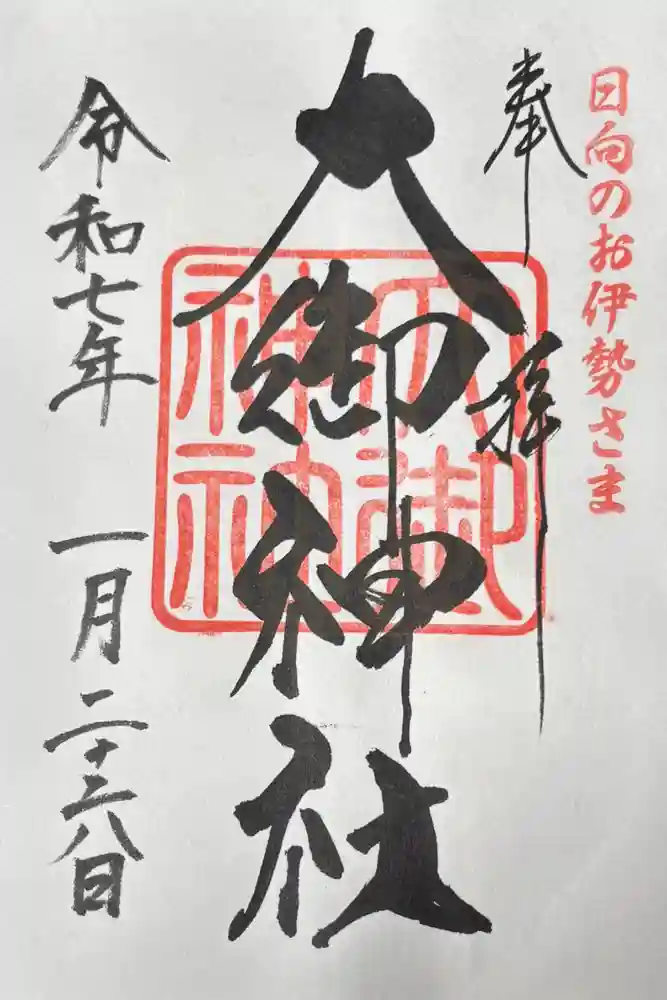 日向のお伊勢さま
奉拝
大御神社
大御
神社
令和七年 一月二十三八日